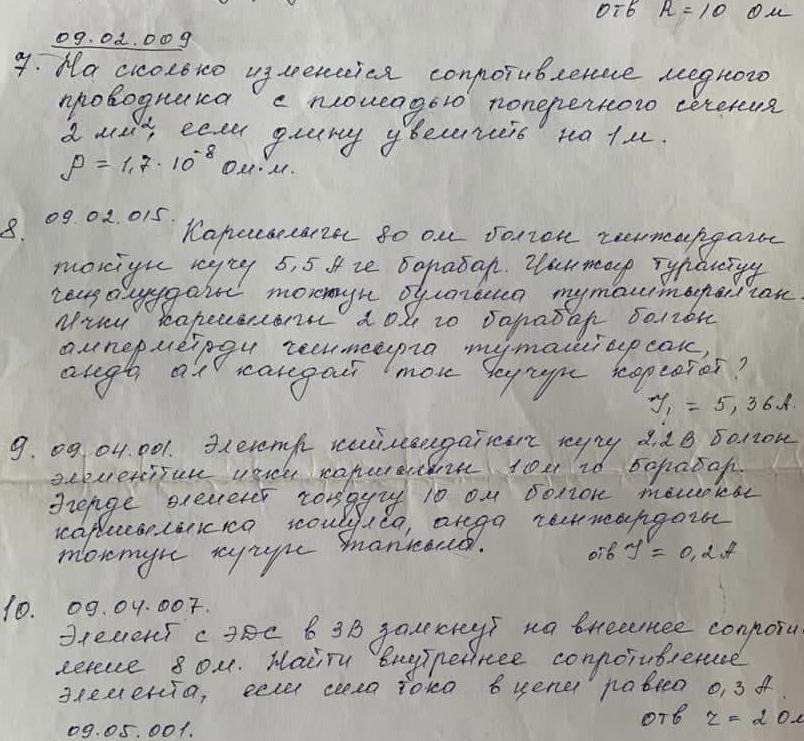 отв R = 10 Ом
09.02.009
7. На сколько изменится сопротивление медного
проводника с площадью поперечного сечения
2 мм², если длину увеличить на 1 м.
ρ = 1,7 · 10⁻⁸ Ом·м.
8. 09.02.015. Каршылыгы 80 ом болгон чынжырдагы
токтун кучу 5,5 А ге барабар. Чынжыр турактуу
чыңалуудагы токтун булагына туташтырылган.
Ички каршылыгы 2 Ом го барабар болгон
амперметрди чынжырга туташтырсак,
анда ал кандай ток кучун корсотот?
I₁ = 5,36 А.
9. 09.04.001. Электр кыймылдаткыч кучу 2,2 В болгон
элементтин ички каршылыгы 1 Ом го барабар.
Эгерде элемент чоңдугу 10 ом болгон тышкы
каршылыкка кошулса, анда чынжырдагы
токтун кучун тапкыла.
отв I = 0,2 А
10. 09.04.007.
Элемент с ЭДС в 3В замкнут на внешнее сопроти-
ление 8 ом. Найти внутреннее сопротивление
элемента, если сила тока в цепи равна 0,3 А.
отв r = 2 Ом
09.05.001.